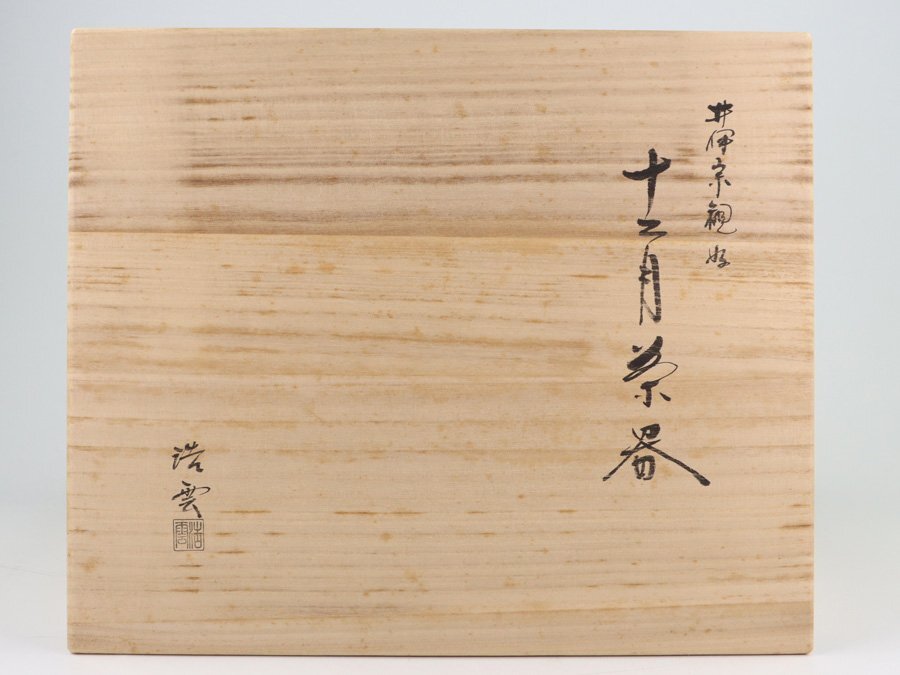 井伊宗観好
十二月茶器
浩雲
浩雲